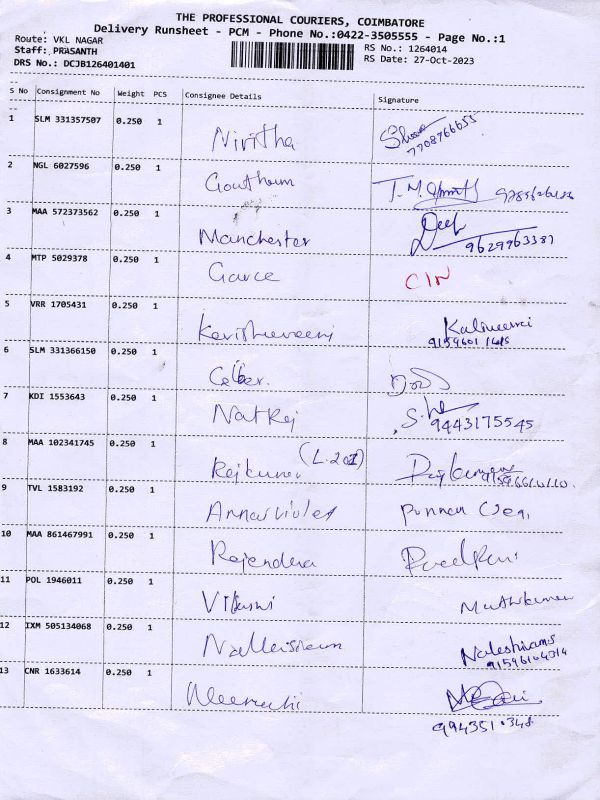 THE PROFESSIONAL COURIERS, COIMBATORE
Delivery Runsheet - PCM - Phone No.:0422-3505555 - Page No.:1
Route: VKL NAGAR
Staff: PRASANTH
DRS No.: DCJB126401401
RS No.: 1264014
RS Date: 27-Oct-2023
S No Consignment No Weight PCS Consignee Details Signature
1 SLM 331357507 0.250 1 Nivitha
7708766653
2 NGL 6027596 0.250 1 Goutham
3 MAA 572373562 0.250 1 Manchester
9629963381
4 MTP 5029378 0.250 1 CIN
5 VRR 1705431 0.250 1
6 SLM 331366150 0.250 1
7 KDI 1553643 0.250 1 Natraj
9443175545
8 MAA 102341745 0.250 1 Rajkumar
9 TVL 1583192 0.250 1
10 MAA 861467991 0.250 1 Rajendera
11 POL 1946011 0.250 1 Muthukumar
12 IXM 505134068 0.250 1
91596104314
13 CNR 1633614 0.250 1 Meenachi